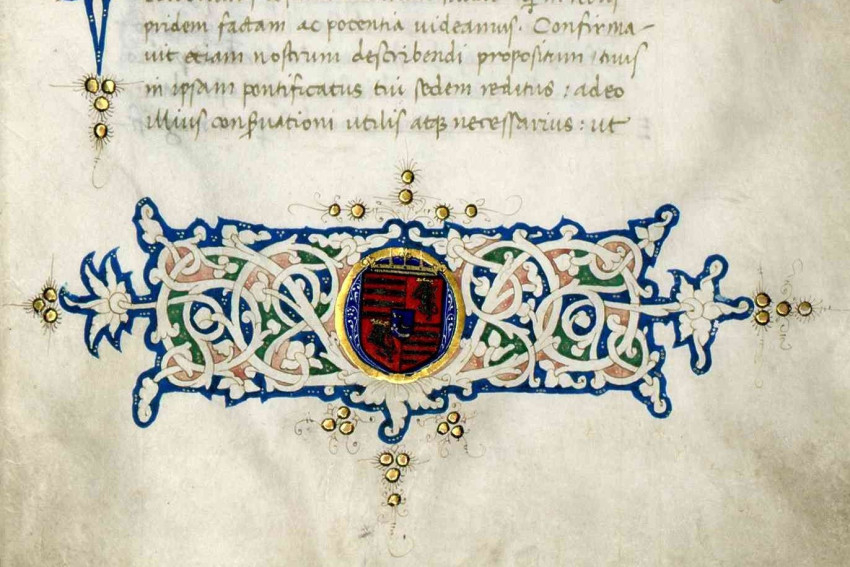 pridem factam ac potentia uideamus. Confirma-
uit etiam nostrum describendi propositum tuus
in ipsam pontificatus tui sedem reditus: adeo
illius conseruationi utilis atqꝫ necessarius: ut